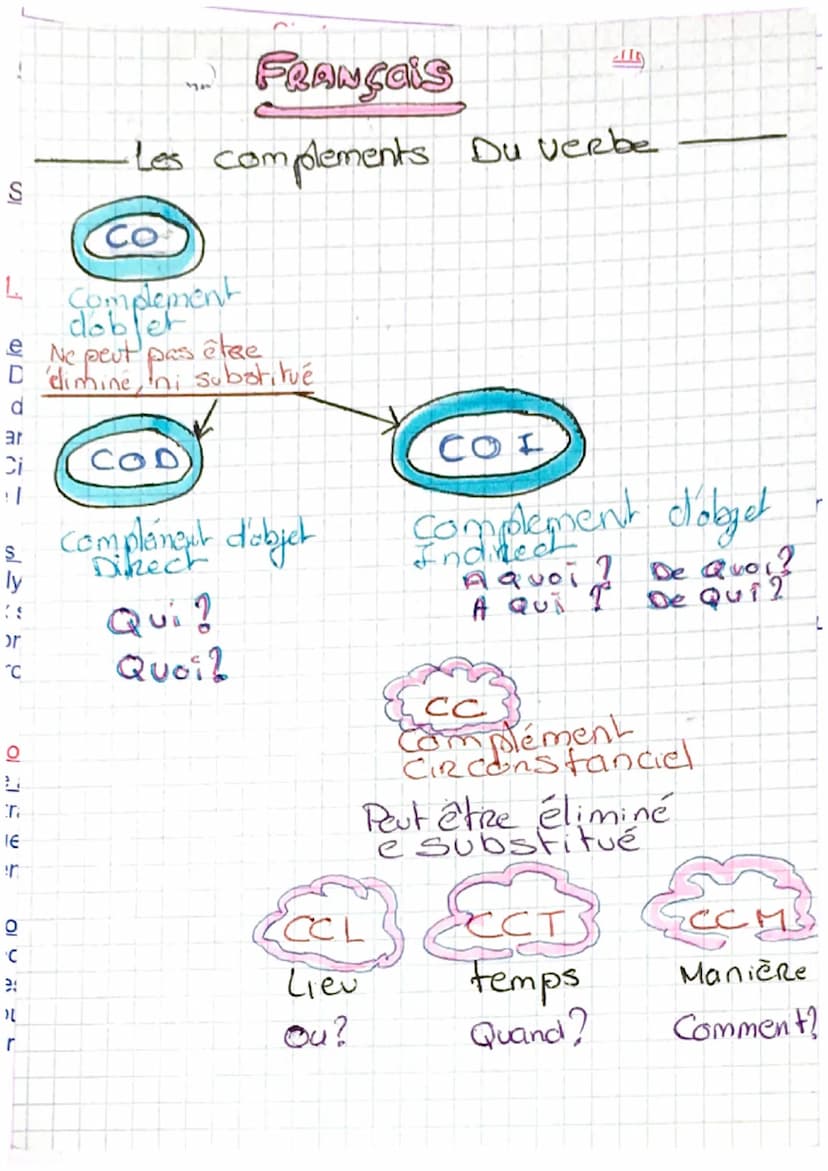 FRANÇais
Les complements Du verbe
CO
Complement
d'objet
Ne peut pas être
éliminé, ni substitué
COD
COI
Complément d'objet
Direct
Complement d'objet
Indirect
A quoi ? De Quoi?
A qui ? De Qui?
Qui ?
Quoi?
CC
Complément
Circonstanciel
Peut être éliminé
e substitué
CCL
CCT
CCM
Lieu
temps
Manière
Ou?
Quand?
Comment?